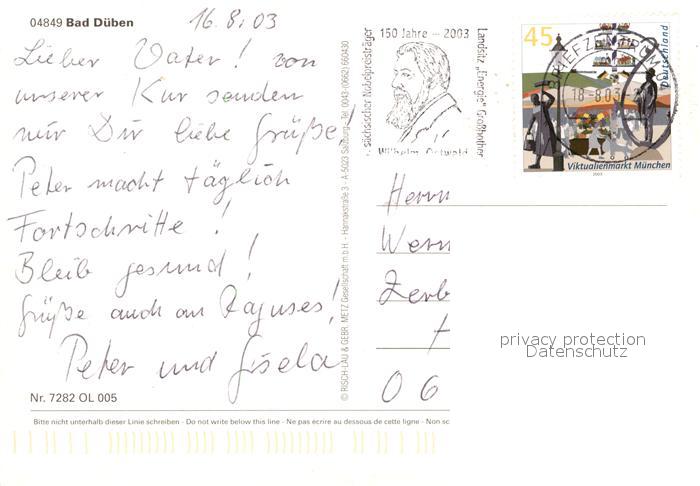 04849 Bad Düben
16.8.03
Lieber Vater! von
unserer Kur senden
wir Dir liebe Grüße!
Peter macht täglich
Fortschritte!
Bleib gesund!
Grüße auch an Raguses!
Peter und Gisela
Nr. 7282 OL 005
Bitte nicht unterhalb dieser Linie schreiben - Do not write below this line - Ne pas écrire au dessous de cette ligne - Non sc
© RISCH-LAU & GEBR. METZ Gesellschaft m.b.H. - Hannakstraße 3 - A-5023 Salzburg - Tel. 0043-(0)662) 660430
150 Jahre – 2003
sächsischer Nobelpreisträger
Landsitz „Energie" Großbothen
Wilhelm Ostwald
45
Deutschland
BRIEFZENTRUM
18-8.03
Viktualienmarkt München
2003
Herrn
Wern
Zerb
06
privacy protection
Datenschutz